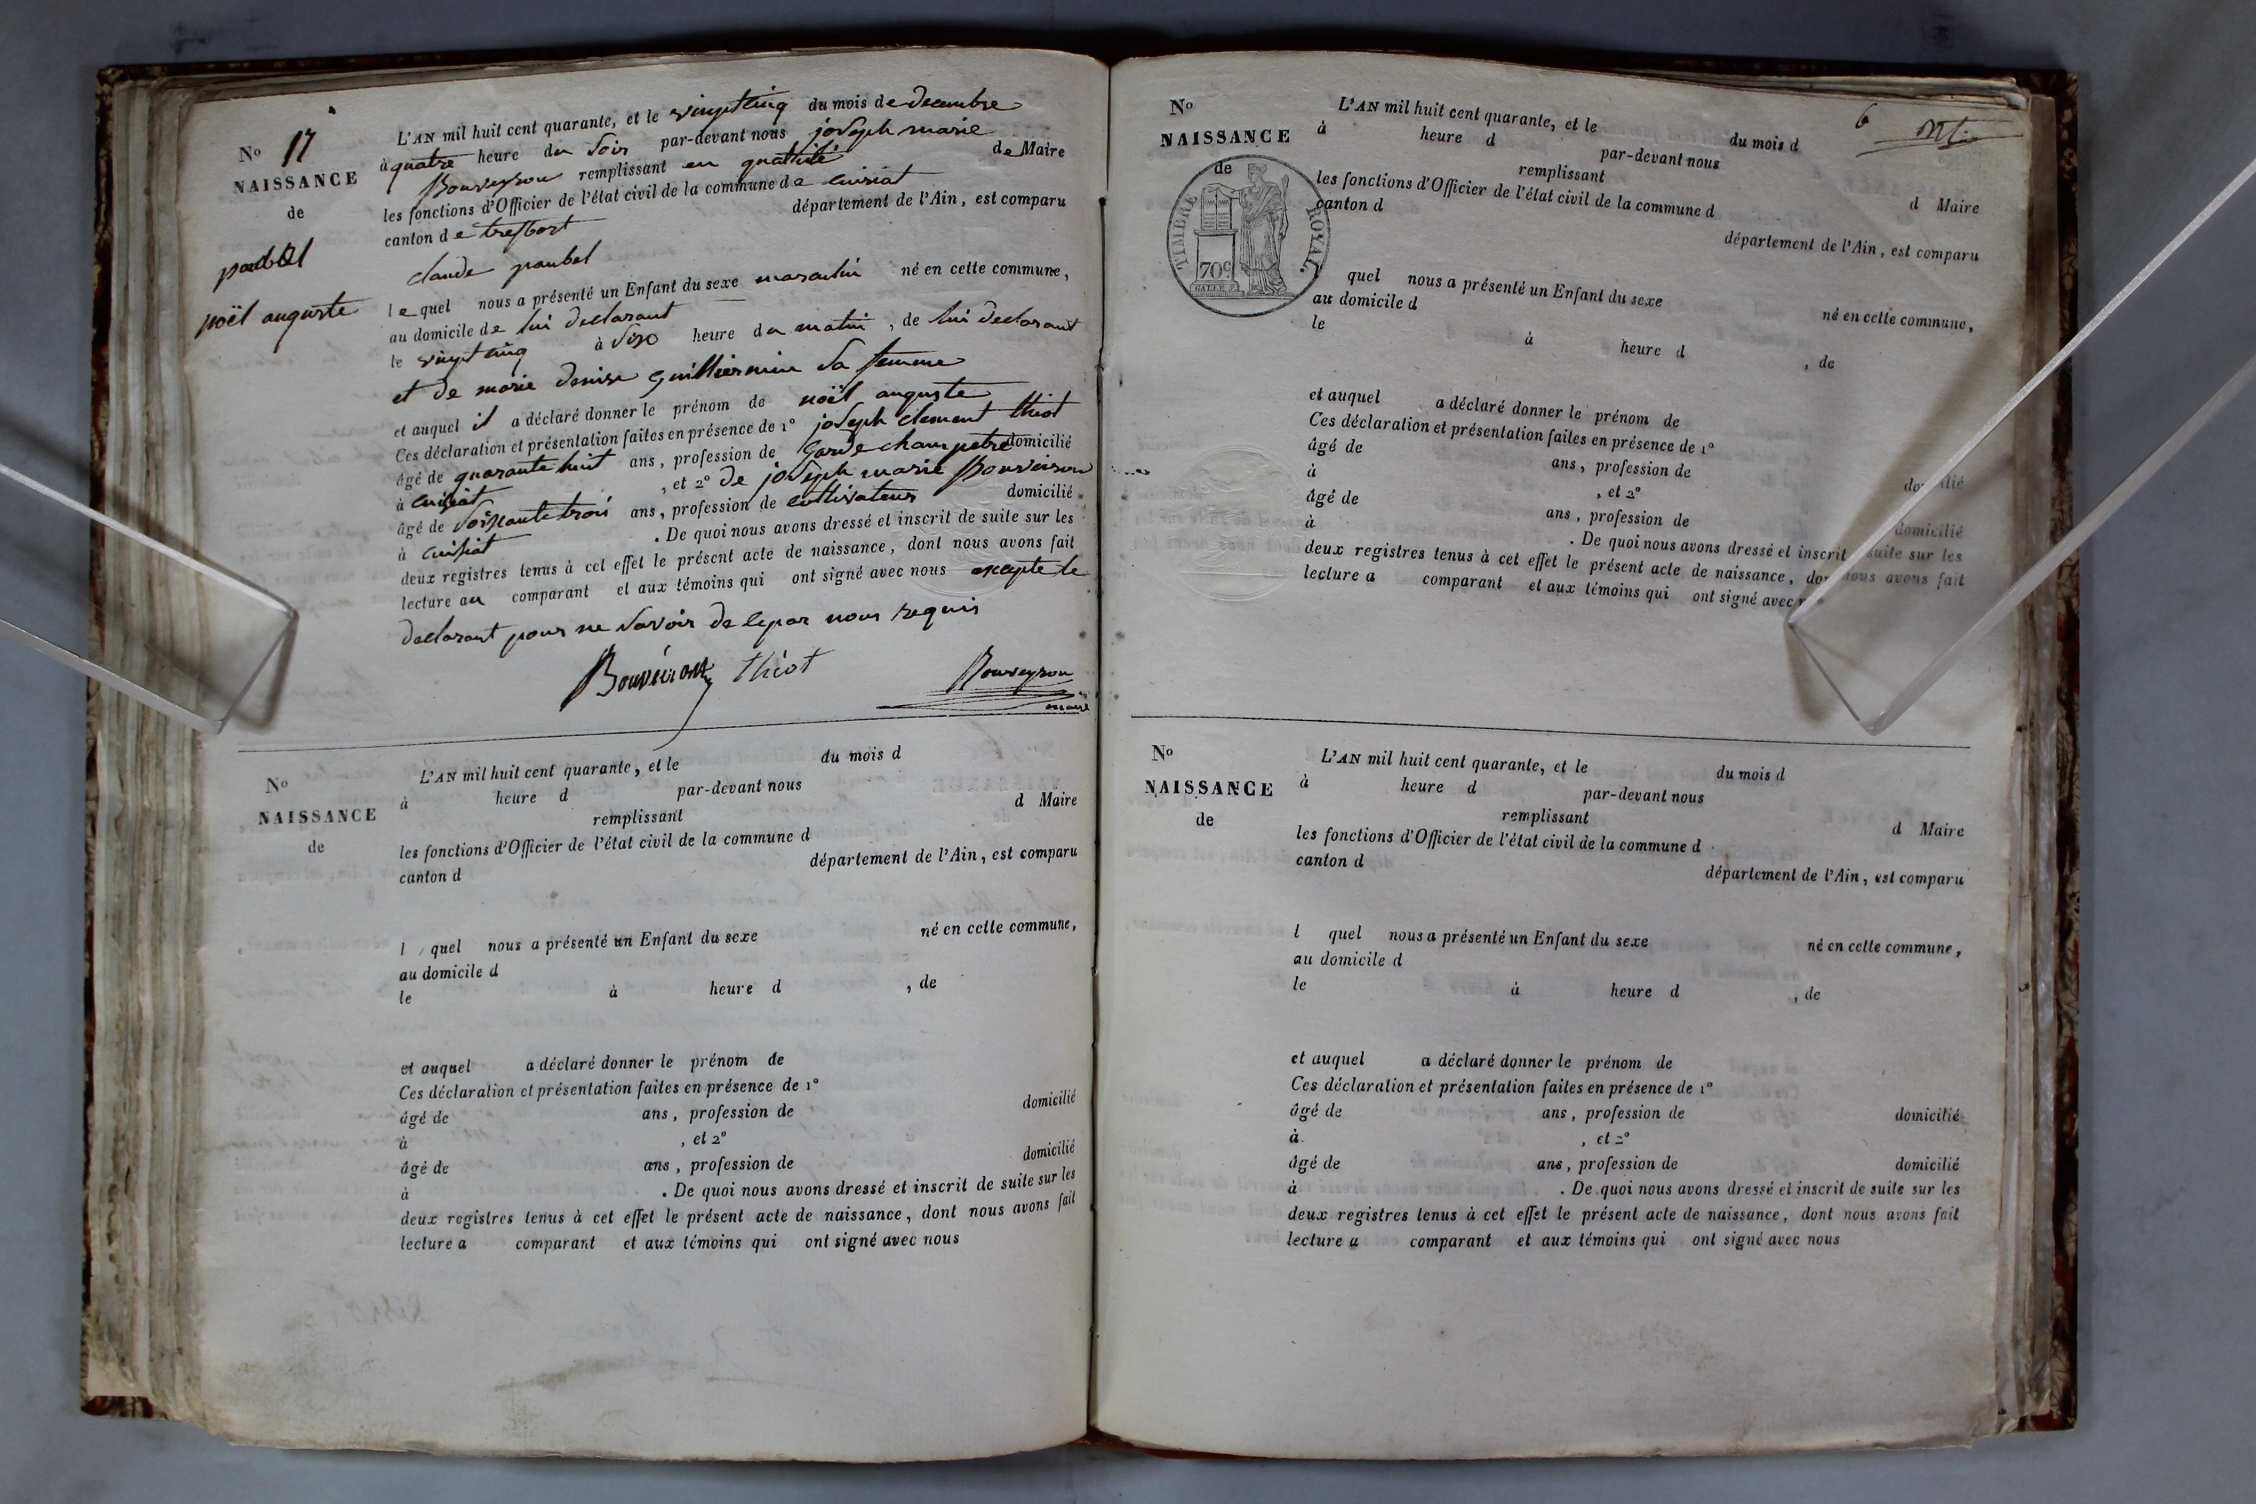 No 17
NAISSANCE
de
paubel
noël auguste
L'AN mil huit cent quarante, et le vingt cinq du mois de decembre
à quatre heure du soir par-devant nous joseph marie
Bouveyron remplissant en qualité de Maire
les fonctions d'Officier de l'état civil de la commune de cuisiat
canton de treffort département de l'Ain, est comparu
claude paubel
le quel nous a présenté un Enfant du sexe masculin né en cette commune,
au domicile de lui declarant
le vingt cinq à six heure du matin, de lui declarant
et de marie denise guilliermin sa femme
et auquel il a déclaré donner le prénom de noël auguste
Ces déclaration et présentation faites en présence de 1° joseph clement thiot
âgé de quarante huit ans, profession de garde champetre domicilié
à cuisiat, et 2° de joseph marie Bouveiron
âgé de soixante trois ans, profession de cultivateur domicilié
à cuisiat. De quoi nous avons dressé et inscrit de suite sur les
deux registres tenus à cet effet le présent acte de naissance, dont nous avons fait
lecture au comparant et aux témoins qui ont signé avec nous excepte le
declarant pour ne savoir de ce par nous requis
Bouveiron thiot Bouveyron
maire
No
NAISSANCE
de
L'AN mil huit cent quarante, et le du mois d
à heure d par-devant nous
remplissant d Maire
les fonctions d'Officier de l'état civil de la commune d
canton d département de l'Ain, est comparu
l quel nous a présenté un Enfant du sexe né en cette commune,
au domicile d
le à heure d , de
et auquel a déclaré donner le prénom de
Ces déclaration et présentation faites en présence de 1°
âgé de ans, profession de domicilié
à , et 2°
âgé de ans, profession de domicilié
à . De quoi nous avons dressé et inscrit de suite sur les
deux registres tenus à cet effet le présent acte de naissance, dont nous avons fait
lecture a comparant et aux témoins qui ont signé avec nous
6
No
NAISSANCE
de
TIMBRE ROYAL.
70c
L'AN mil huit cent quarante, et le du mois d
à heure d par-devant nous
remplissant d Maire
les fonctions d'Officier de l'état civil de la commune d
canton d département de l'Ain, est comparu
quel nous a présenté un Enfant du sexe né en cette commune,
au domicile d
le à heure d , de
et auquel a déclaré donner le prénom de
Ces déclaration et présentation faites en présence de 1°
âgé de ans, profession de domicilié
à , et 2°
âgé de ans, profession de domicilié
à . De quoi nous avons dressé et inscrit suite sur les
deux registres tenus à cet effet le présent acte de naissance, dont nous avons fait
lecture a comparant et aux témoins qui ont signé avec
No
NAISSANCE
de
L'AN mil huit cent quarante, et le du mois d
à heure d par-devant nous
remplissant d Maire
les fonctions d'Officier de l'état civil de la commune d
canton d département de l'Ain, est comparu
l quel nous a présenté un Enfant du sexe né en cette commune,
au domicile d
le à heure d , de
et auquel a déclaré donner le prénom de
Ces déclaration et présentation faites en présence de 1°
âgé de ans, profession de domicilié
à , et 2°
âgé de ans, profession de domicilié
à . De quoi nous avons dressé et inscrit de suite sur les
deux registres tenus à cet effet le présent acte de naissance, dont nous avons fait
lecture a comparant et aux témoins qui ont signé avec nous